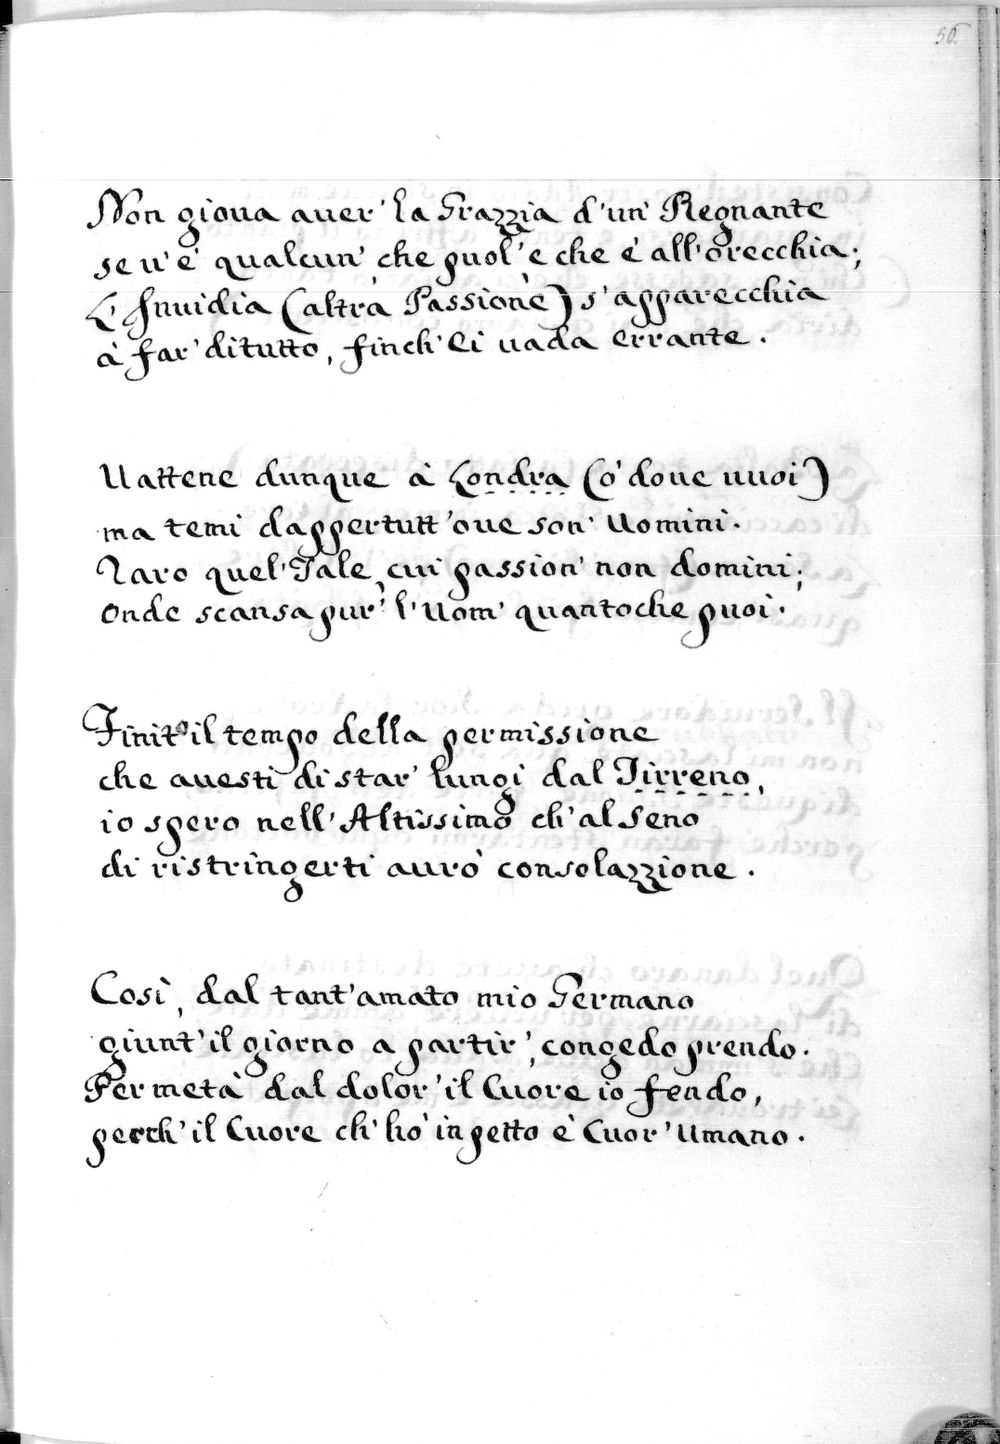 50.
Non gioua auer' la Grazzia d'un' Regnante
se u'è qualcun', che puol' e che è all'orecchia;
L'Inuidia (altra Passione) s'apparecchia
à far' ditutto, finch' ei uada errante.
Uattene dunque à Londra (ò doue uuoi)
ma temi dappertutt' oue son' Uomini.
Raro quel' Tale, cui passion' non domini;
onde scansa pur' l'Uom' quantoche puoi.
Finit' il tempo della permissione
che auesti di star' lungi dal Tirreno,
io spero nell' Altissimo ch' al Seno
di ristringerti aurò consolazzione.
Così, dal tant' amato mio Germano
giunt' il giorno a partir', congedo prendo.
Per metà dal dolor' il Cuore io fendo,
perch' il Cuore ch' hò in petto è Cuor' Umano.